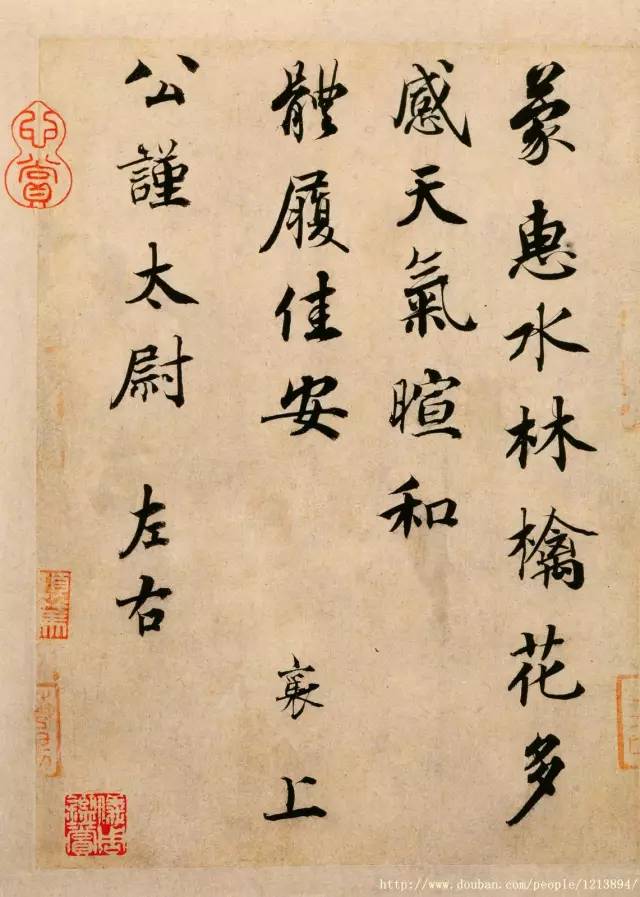 蒙惠水林檎花多
感天氣暄和
體履佳安 襄上
公謹太尉 左右
http://www.douban.com/people/1213894/